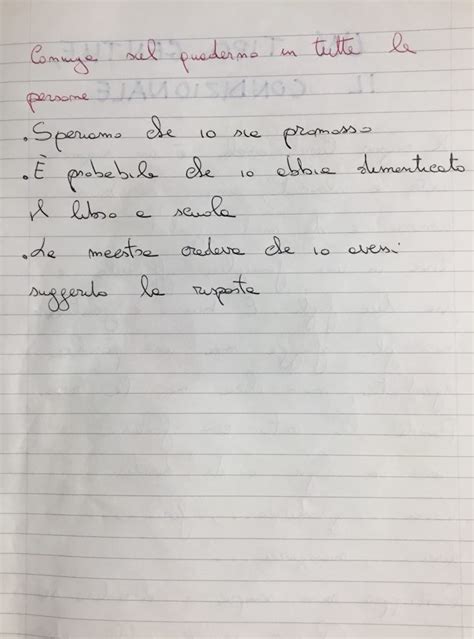 Coniuga sul quaderno in tutte le
persone
.Speriamo che io sia promosso
.È probabile che io abbia dimenticato
il libro a scuola
.La maestra credeva che io avessi
suggerito la risposta